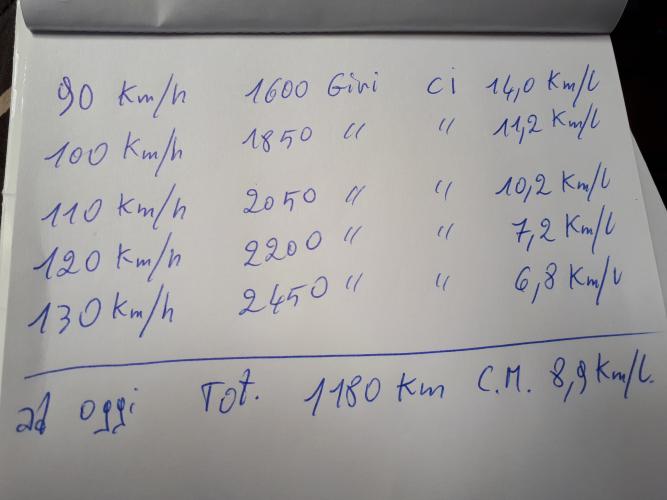 90 Km/h 1600 Giri CI 14,0 Km/l
100 Km/h 1850 " " 11,2 Km/l
110 Km/h 2050 " " 10,2 Km/l
120 Km/h 2200 " " 7,2 Km/l
130 Km/h 2450 " " 6,8 Km/l
ad oggi Tot. 1180 Km C.M. 8,9 Km/l.